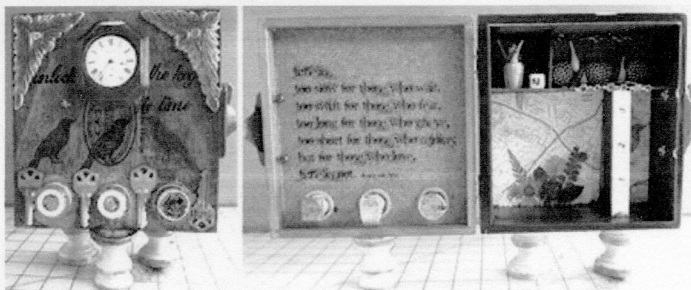 unlock the key
to time
time is,
too slow for those who wait,
too swift for those who fear,
too long for those who grieve,
too short for those who rejoice,
but for those who love,
time is not.
N